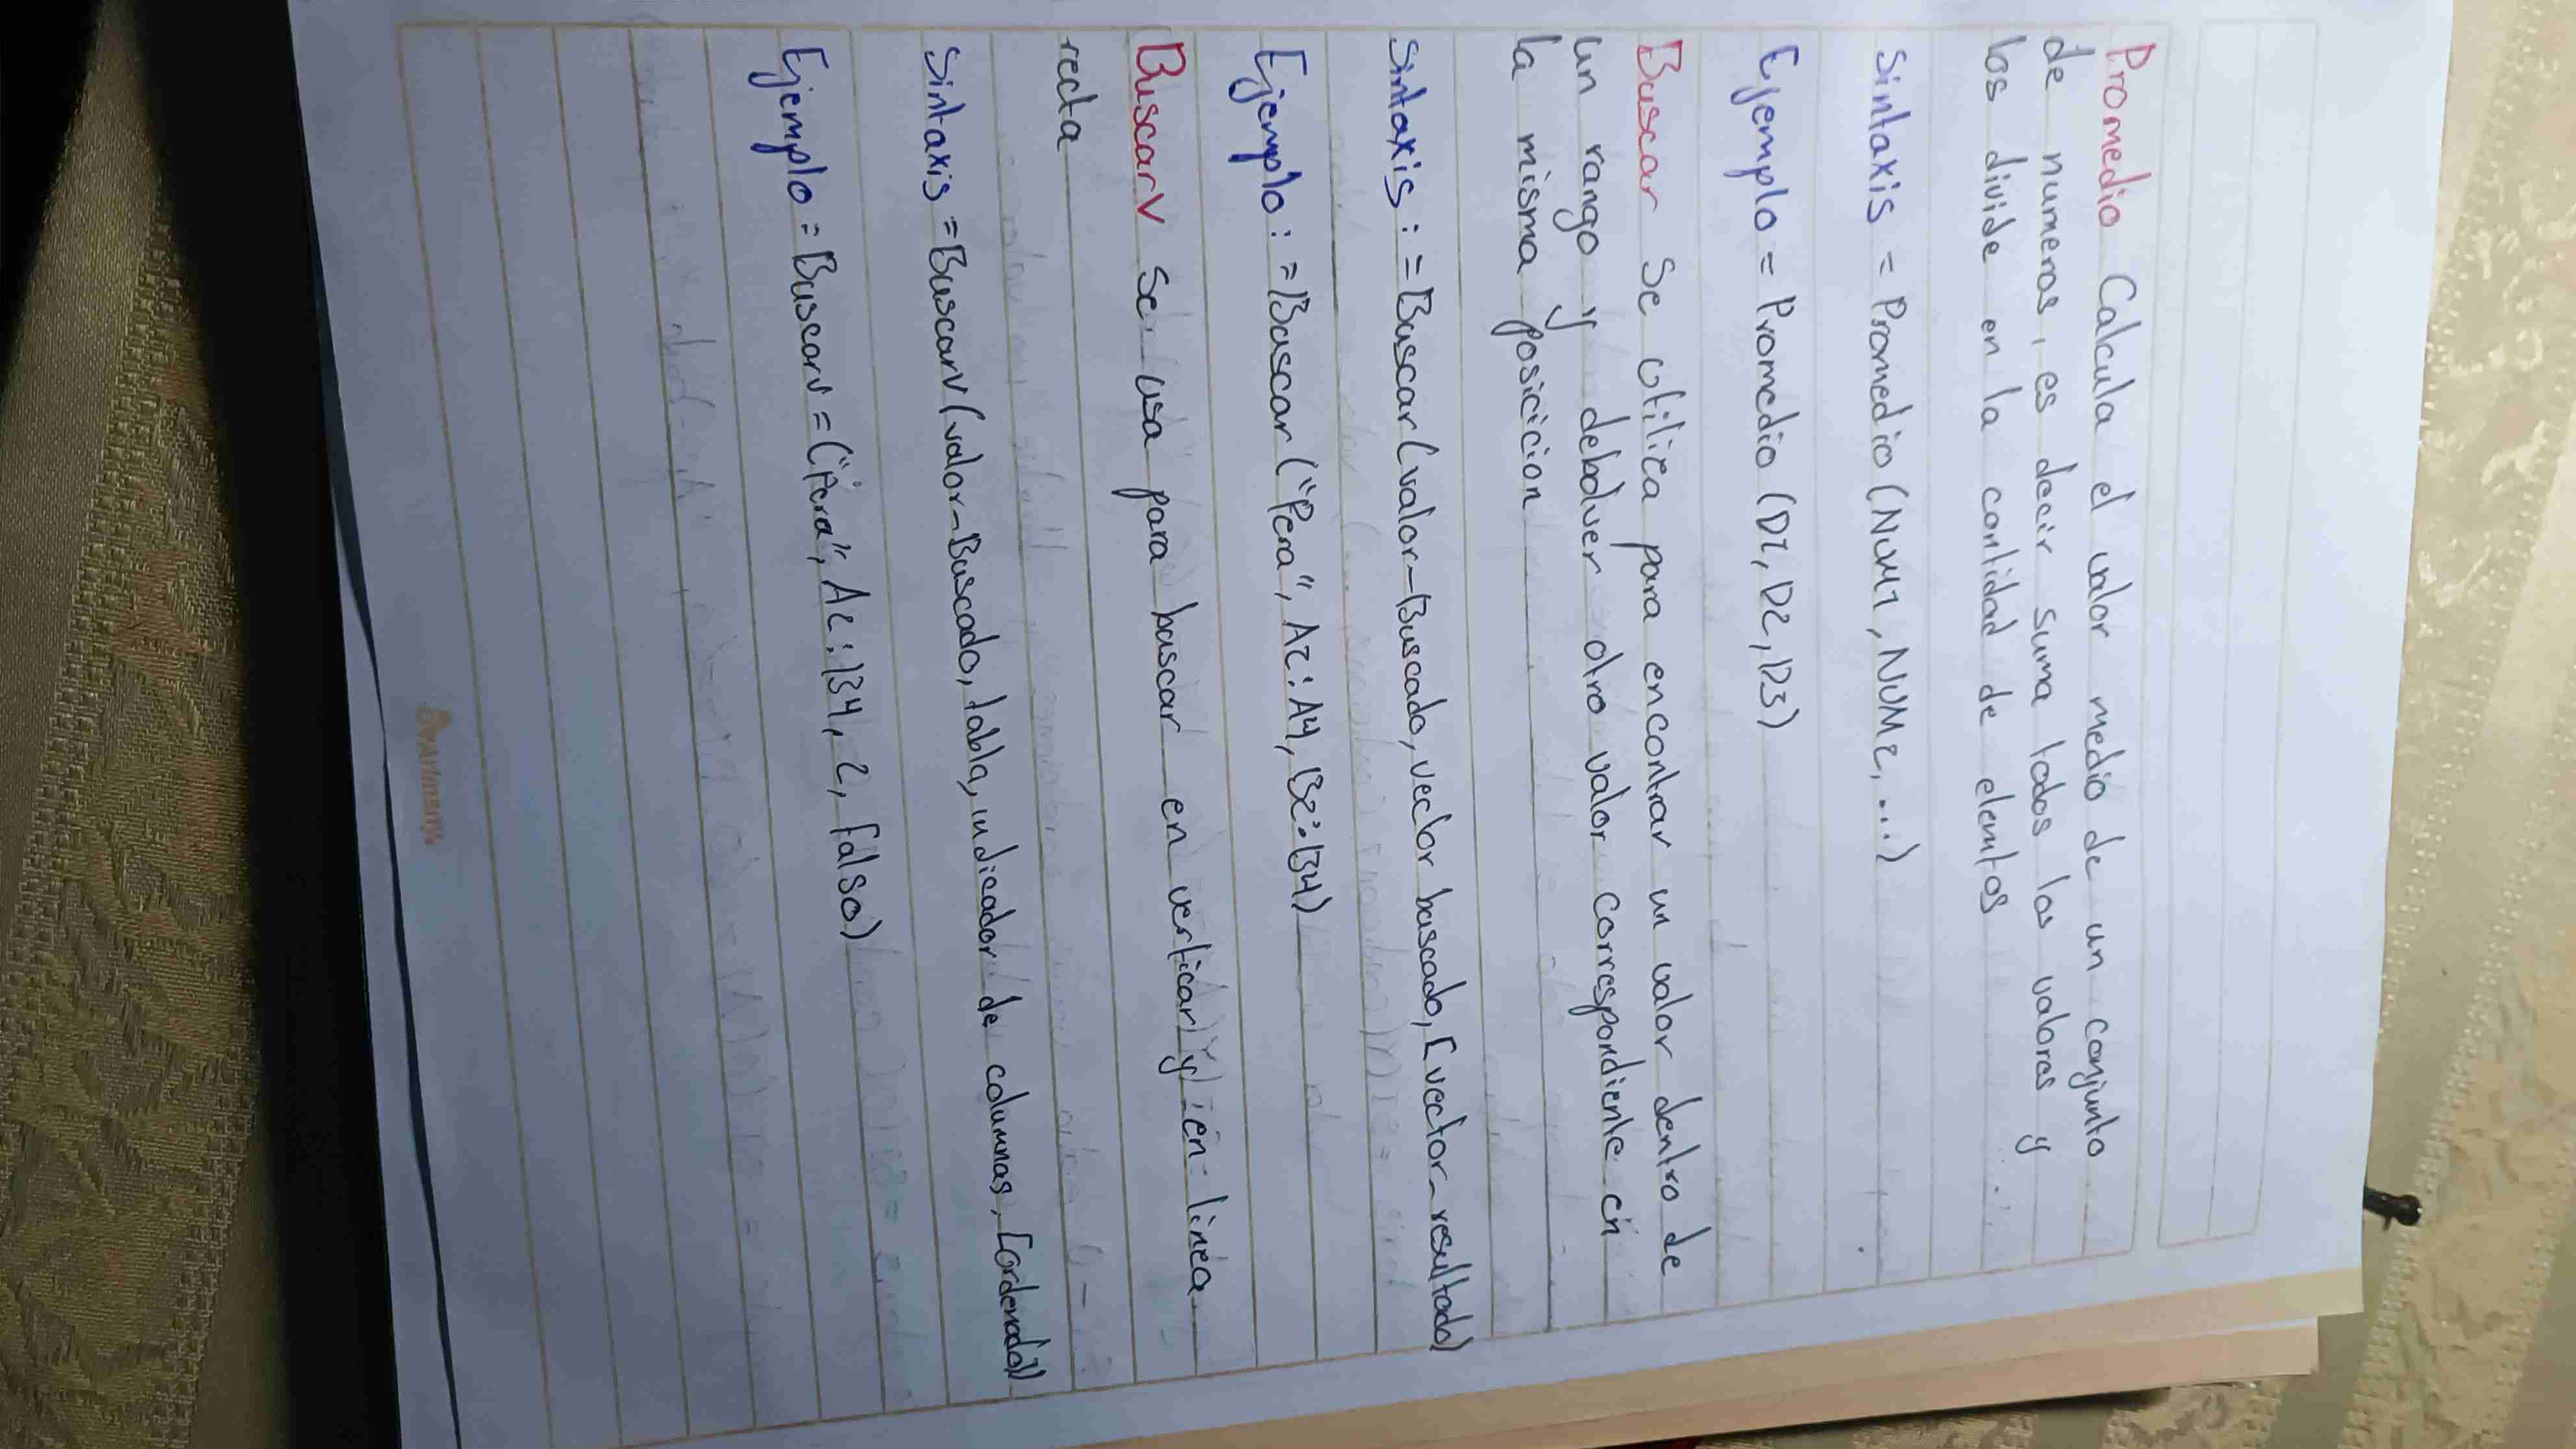 Promedio Calcula el valor medio de un conjunto
de numeros, es decir suma todos los valores y
los divide en la contidad de elemtos
Sintaxis = Promedio (NUM1, NUM2, ...)
Ejemplo = Promedio (D1, D2, D3)
Buscar Se utiliza para encontrar un valor dentro de
un rango y debolver otro valor correspondiente en
la misma posicicion
Sintaxis : = Buscar (valor-Buscado, vector buscado, [vector-resultado)
Ejemplo : = Buscar ("Pera", A2:A4, B2:B4)
Buscarv Se usa para buscar en verticar y en linea
recta
Sintaxis = Buscarv (valor-Buscado, tabla, indicador de columnas, [ordenado])
Ejemplo = Buscarv = ("Pera", A2:B4, 2, falso)